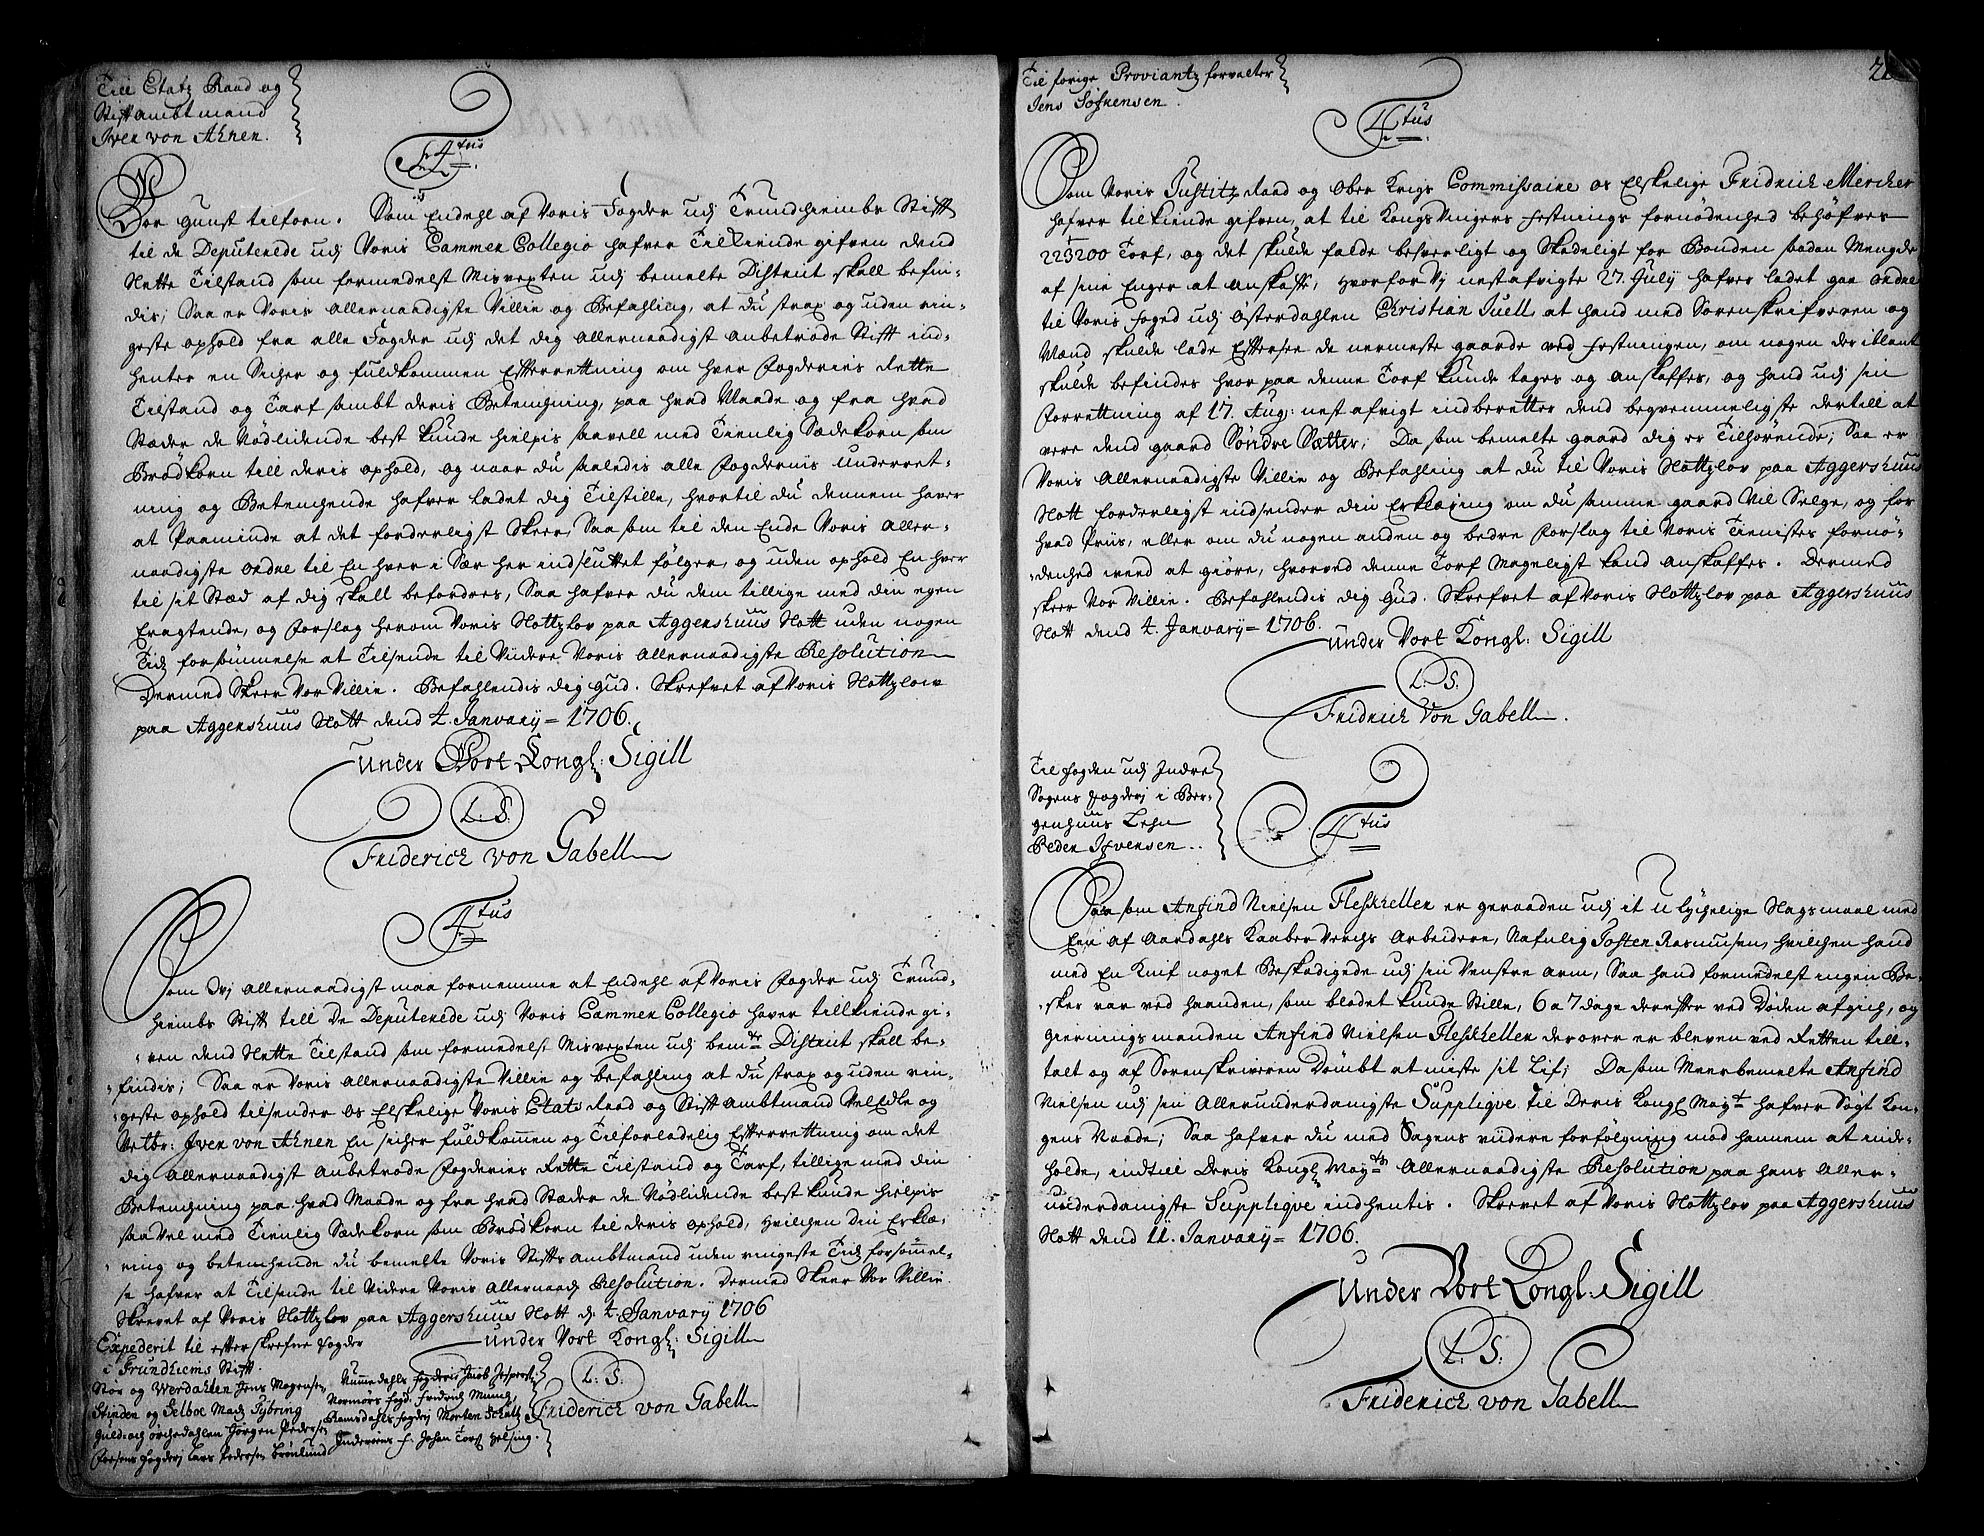 Till Etatz Raad og
Stiftambtmand
Iven von Ahnen.
F 4tus
Vor gunst tilforn. Som Endehl af Voris Fogder udj Trundhiembs Stift
til de Deputerede udj Voris Cammer Collegio hafver Tilkiende gifven dend
Slette Tilstand som formedelst Misvexten udj bemelte District skall befin-
dis; Saa er Voris Allernaadigste Villie og Befahling, at du strax og uden rin-
geste ophold fra alle Fogder udj det dig Allernaadigst Anbetrode Stift ind-
henter en Sicher og fuldkommen Efterrettning om hver Fogderies Rette
Tilstand og Tarf sambt deris Betenchning, paa hvad Maade og fra hvad
Stæder de Nödlidende best kunde hielpis saavell med Tienlig Sædekorn som
Brödkorn till deris ophold, og naar du saaledis alle Fogdernis underret-
ning og Betenchende hafver ladet dig Tilstille, hvortil du dennem haver
at Paaminde at det forderligst Skeer, Saa som til den Ende Voris Aller-
naadigste ordre til En hver i Sær her indsluttet fölger, og uden ophold En hver
til sit Stæd af dig skall befordres, Saa hafver du dem tillige med din egen
Eragtende, og Forslag herom Voris Slottzlov paa Aggershuus Slott uden nogen
Tidz forsömmelse at Tilsende til Viidere Voris Allernaadigste Resolution
Dermed Skeer Vor Villie. Befahlendis dig Gud. Skrefvet af Voris Slottzlow
paa Aggershuus Slott dend 4. January 1706.
Under Vort Kongl: Sigill
L. S.
Friderich von Gabell
4tus
Som Wj Allernaadigst maa fornemme at Endehl af Voris Fogder udj Trund-
hiembs Stift till De Deputerede udj Voris Cammer Collegio haver tillkiende gi-
ven dend Slette Tilstand som formedelst Misvexten udj bemte District skall be-
findis; Saa er Voris Allernaadigste Villie og befahling at du strax og uden rin-
geste ophold tilsender os Elskelige Voris Etats Raad og Stift Ambtmand VelEdle og
Velbr: Iven von Ahnen En sicher fuldkommen og Tilforladelig Efterrettning om det
dig Allernaadigst Anbetrode Fogderies Rette Tilstand og Tarf, tillige med din
Betenchning paa hvad Maade og fra hvad Stæder de Nödlidende best kunde hielpis
saa Vel med Tienlig Sædekorn som Brödkorn til deris ophold, hvilchen Din Erklæ-
ring og betenchende du bemelte Voris Stiftsambtmand uden ringeste Tidz forsömmel-
se hafver at Tilsende til Videre Voris Allernaadj Resolution. Dermed Skeer Vor Villie.
Skrevet af Voris Slottzlov paa Aggershuus Slott dj 4. January 1706
Under Vort Kongl: Sigill
Expederit til efterskrefne Fogder
i Trundhiems Stift.
Stör og Werdahlen Jens Mogensen
Strinden og Selboe Mads Fybring
Guld- och örchedahlen Jörgen Pedersen
Fosens Fogderj Lars Pedersen Brönlund
Nummedahls Fogderie Jacob Jespers:
Normörs Fogd: Fredrich Münch,
Romsdahls Fogderj Morten Schultz
Inderöens f. Johan Torst Helsing.
L: S.
Friderich von Gabell
2
Til forige Proviantz forvalter
Jens Söfrensen.
4tus
Som Voris Justitz Raad og Ober Krigs Commissaire os Elskelige Fridrich Mercher
hafver tilkiende gifven, at til Kongs Vingers Festnings fornödenhed behöfves
223200 Torf, og det skulde falde besverligt og Skadeligt for Bonden saadan Mengde
af sine Enger at Anskaffe, Hvorfor Vj nestafvigte 27. July hafver ladet gaa Ordre
til Voris foged udj Österdahlen Christian Juell at hand med Sorenskrifveren og
Mænd skulde lade Eftersee de nermeste gaarde ved Festningen, om nogen der iblant
skulde befindes hvor paa denne Torf kunde tages og Anskaffes, og hand udj sin
Forrettning af 17. Aug: nestafvigt indberetter dend begvemmeligste dertill at
være dend gaard Söndre Sætter; Da som bemelte gaard dig er Tilhörende; Saa er
Voris Allernaadigste Villie og Befahling at du til Voris Slottzlov paa Aggershuus
Slott forderligst indsender din Erklæring om du samme gaard Vil Selge, og for
hvad Priis, eller om du nogen anden og bedre Forslag til Voris Tienistes fornö-
denhed weed at giöre, hvorved denne Torf Mageligst kand Anskaffes. Dermed
skeer Vor Villie. Befahlendis dig Gud. Skrefvet af Voris Slottzlov paa Aggershuus
Slott dend 4. January 1706.
Under Vort Kongl: Sigill
L. S.
Fridrich von Gabell.
Til Fogden udj Indre
Sogens Fogderj i Ber-
genhuus Lehn
Peder Ifversen.
4tus
Saa som Anfind Nielsen Fleskhellen er geraaden udj it ulychelige Slagsmaal med
Een af Aardahls Kaaber Verchs Arbeidere, Nafnlig Josten Rasmusen, hvilchen hand
med En Knif noget Beskadigede udj sin Venstre Arm, Saa hand formedelst ingen Be-
sker var ved haanden, som blodet kunde Stille, 6 a 7 dage derefter ved Döden afgich, og
gierningsmanden Anfind Nielsen Fleskhellen derover er bleven ved Retten till-
talt og af Sorenskriveren Dömbt at miste sit Lif; Da som Meerbemelte Anfind
Nielsen udj sin Allerunderdanigste Suppliqve til Deris Kongl Mayt hafver Sögt Kon-
gens Naade; Saa hafver du med Sagens viidere forfölgning mod hannem at inde-
holde, indtill Deris Kongl Mayts Allernaadigste Resolution paa hans Aller-
underdanigste Suppliqve indhentis. Skrevet af Voris Slottzlov paa Aggershuus
Slott dend 11. January 1706.
Under Vort Kongl: Sigill
L. S.
Friderich von Gabell